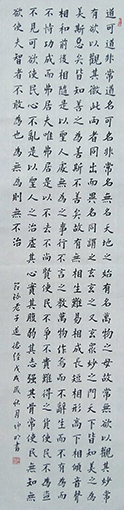 道可道非常道名可名非常名無名天地之始有名萬物之母故常無欲以觀其妙常
有欲以觀其徼此兩者同出而異名同謂之玄玄之又玄眾妙之門天下皆知美之為
美斯惡矣皆知善之為善斯不善矣故有無相生難易相成長短相形高下相傾音聲
相和前後相隨是以聖人處無為之事行不言之教萬物作焉而不辭生而不有為而
不恃功成而弗居夫唯弗居是以不去不尚賢使民不爭不貴難得之貨使民不為盜
不見可欲使民心不亂是以聖人之治虛其心實其腹弱其志強其骨常使民無知無
欲使夫智者不敢為也為無為則無不治
老子道德經戊戌秋月書